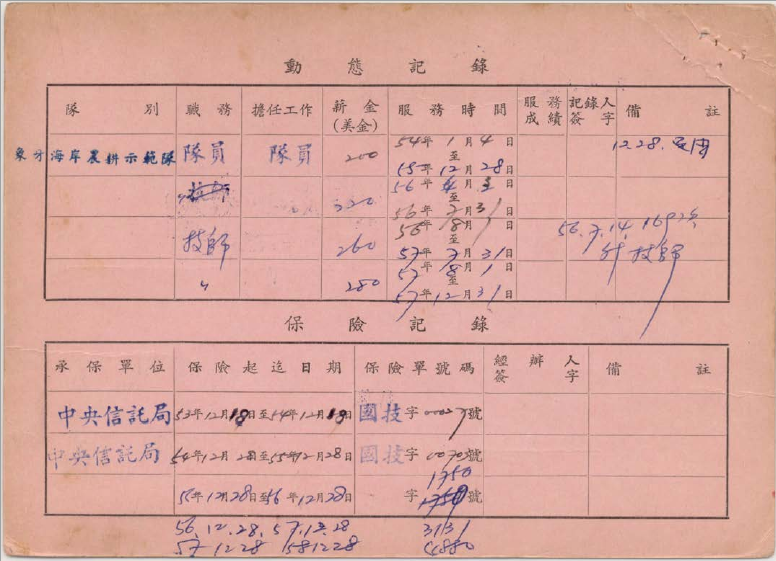 動態記錄
隊別 職務 擔任工作 薪金(美金) 服務時間 服務成績 記錄人簽字 備註
象牙海岸農耕示範隊 隊員 隊員 200 54年1月4日至55年12月28日 12.28.
220 56年4月 日至56年7月31日
技師 260 56年8月1日至57年7月31日 56.7.14. 技師
〃 280 57年8月1日至57年12月31日
保險記錄
承保單位 保險起迄日期 保險單號碼 經辦人簽字 備註
中央信託局 53年12月18日至54年12月18日 國技字 號
中央信託局 54年12月28日至55年12月28日 國技字0070號
1750
55年12月28日至56年12月28日 字 號
56.12.28. 57.12.28 3131
57 12 28 58 12 28 4880